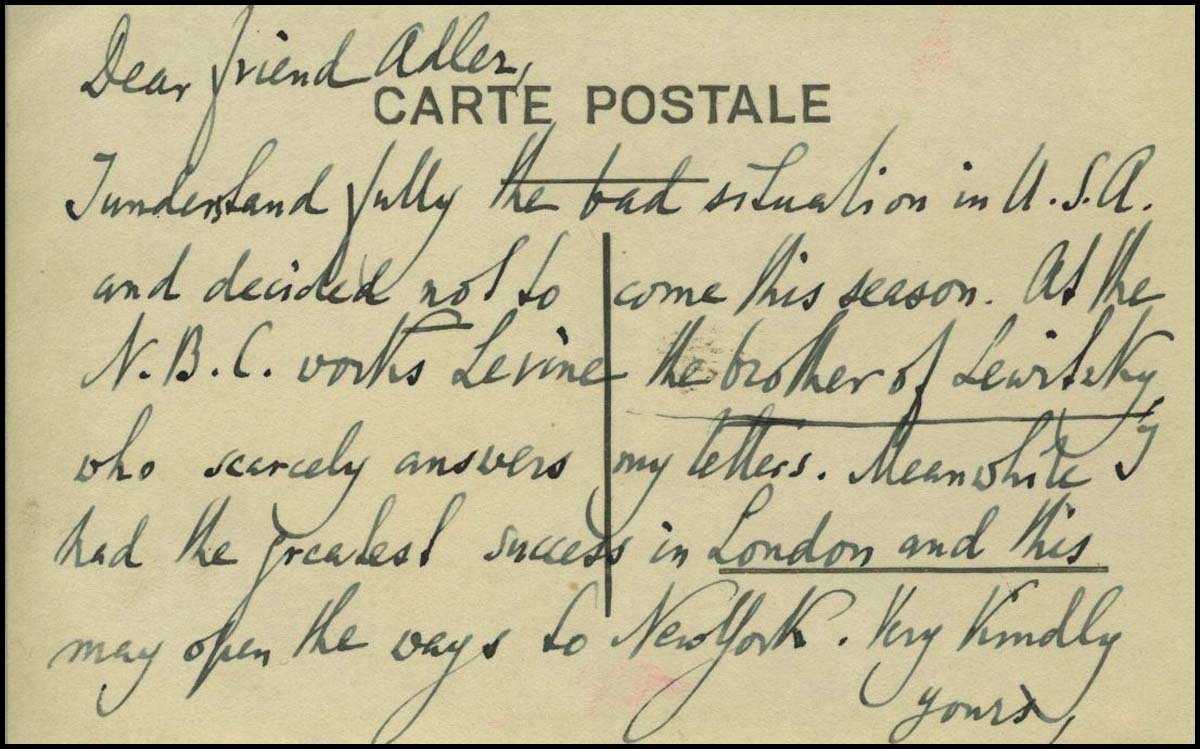 Dear friend Adler,
CARTE POSTALE
I understand fully the bad situation in U.S.A.
and decided not to come this season. At the
N.B.C. works Levine the brother of Lewitzky,
who scarcely answers my letters. Meanwhile I
had the greatest success in London and this
may open the ways to New York. Very kindly
yours,